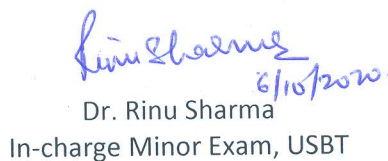 Rinu Sharma
6/10/2020
Dr. Rinu Sharma
In-charge Minor Exam, USBT